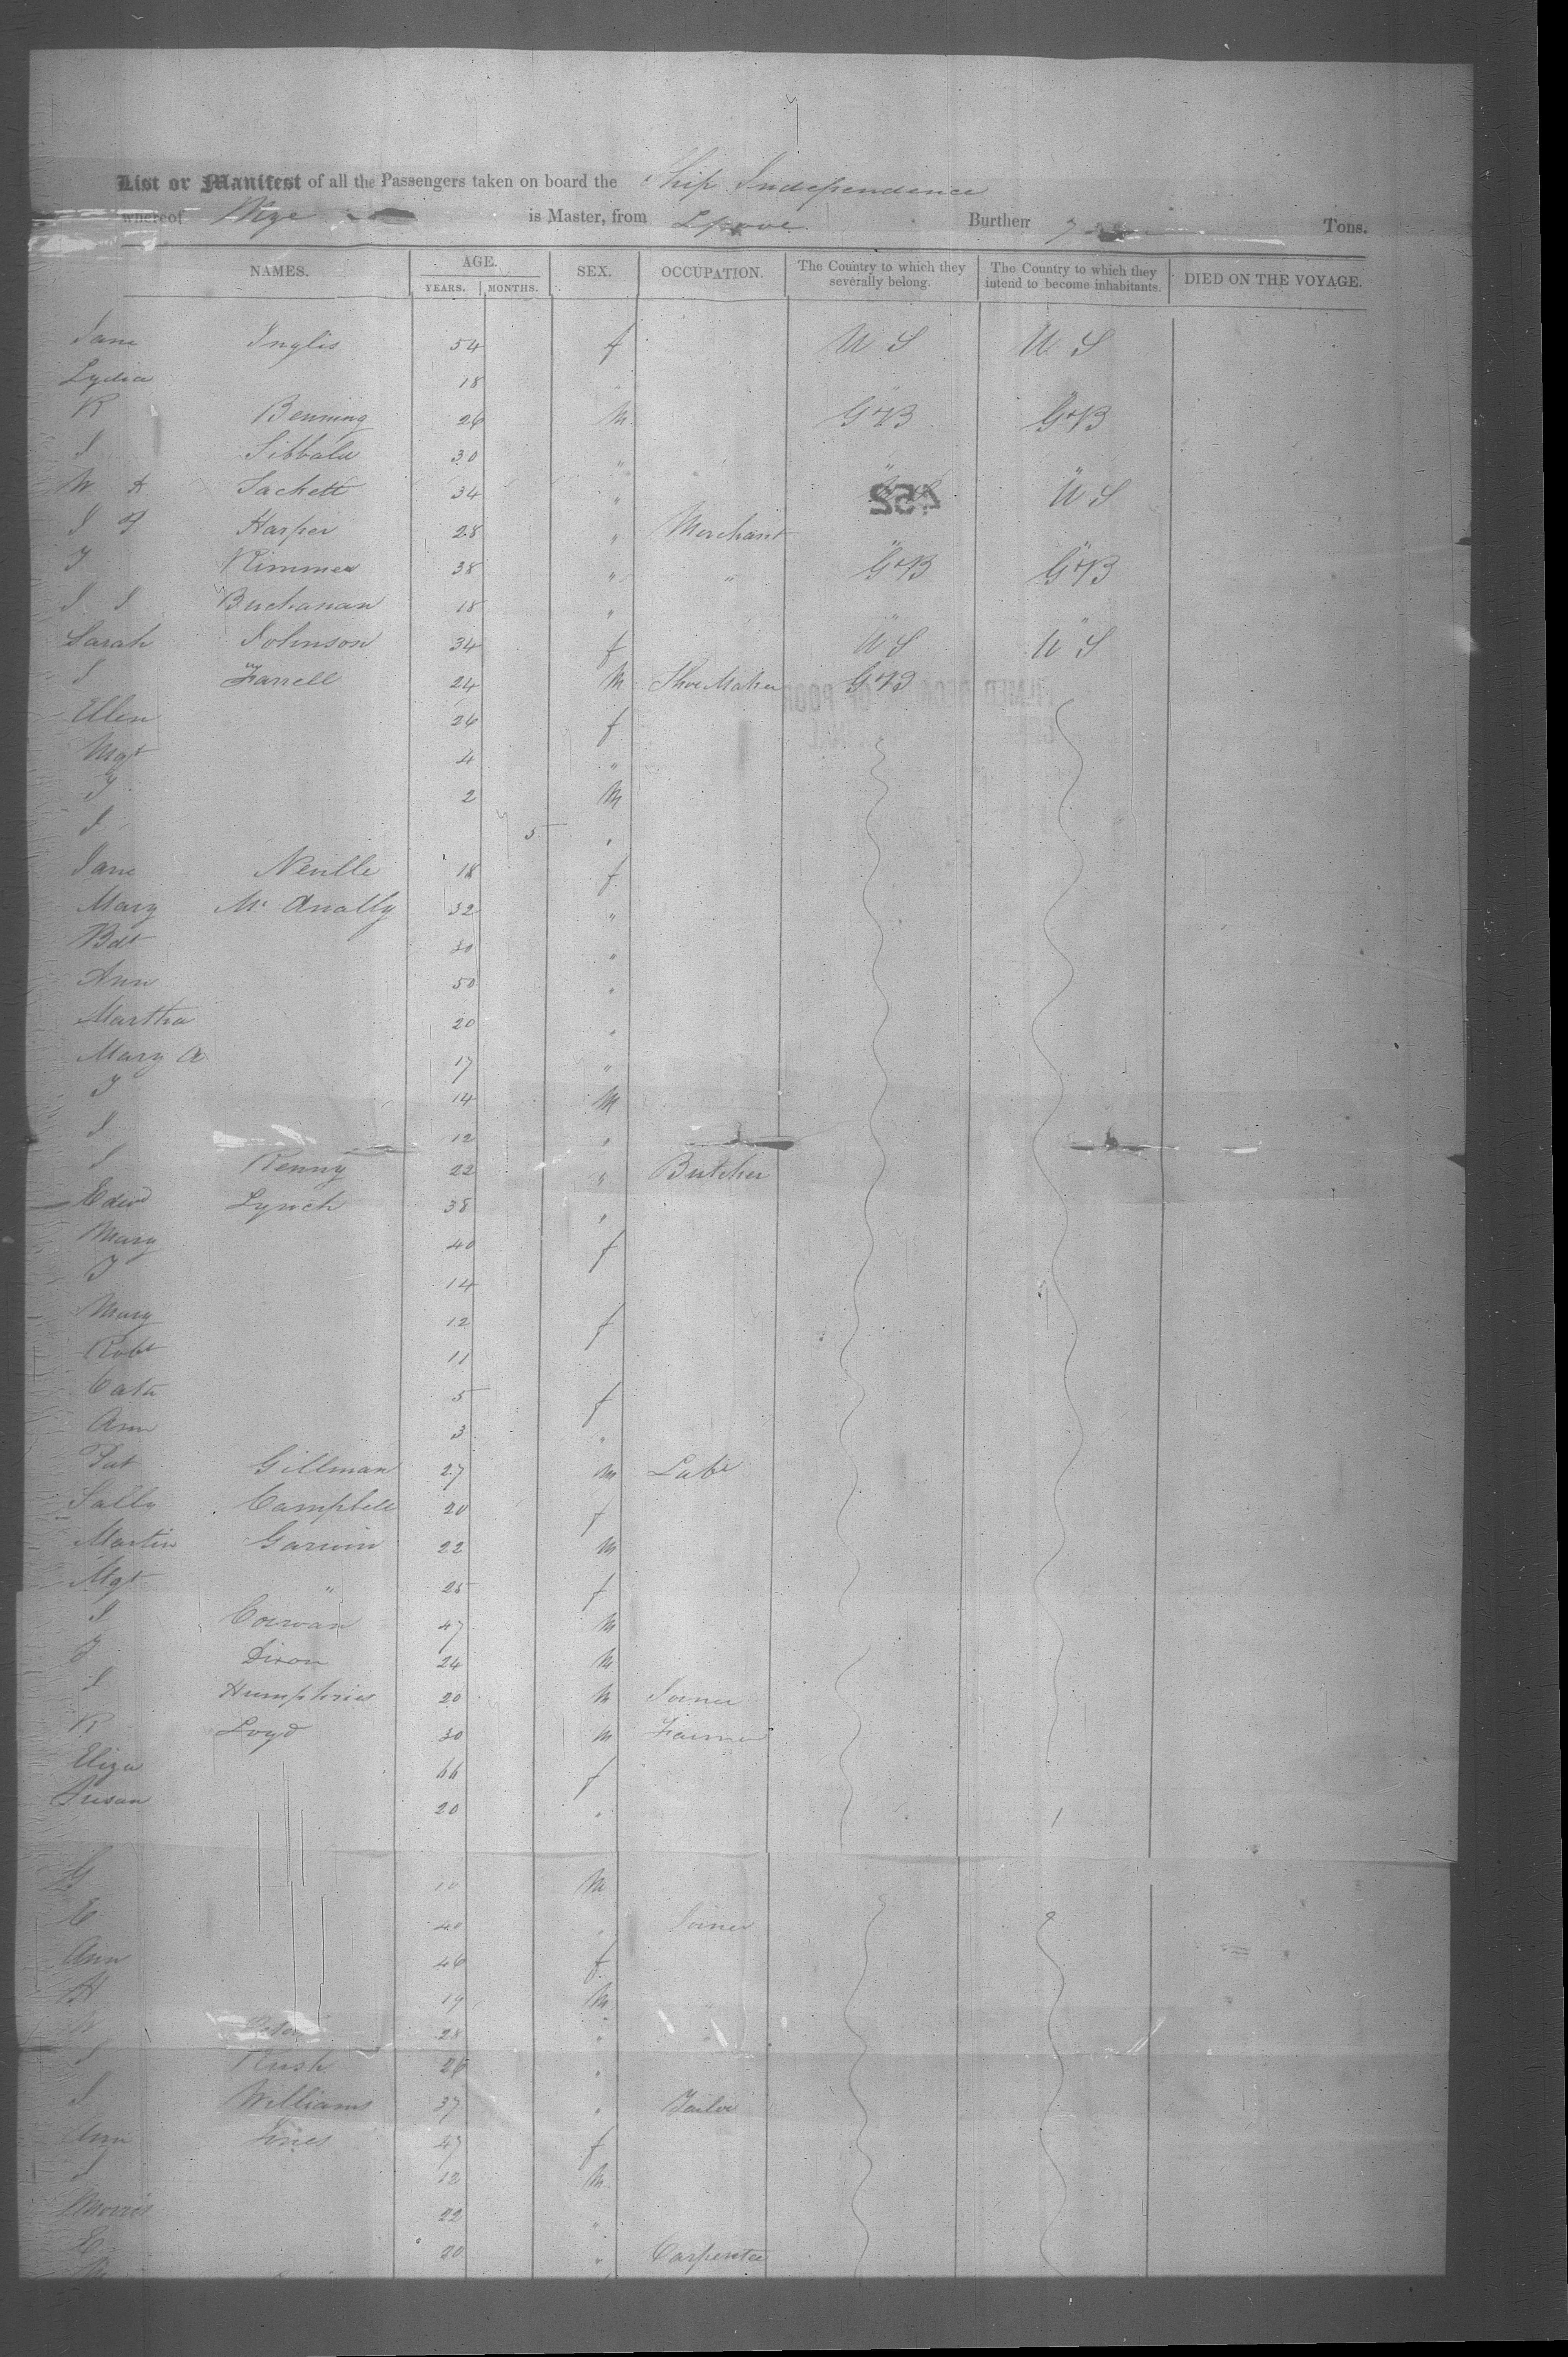 List or Manifest of all the Passengers taken on board the Ship Independence
whereof Nye is Master, from Lpool Burthen Tons.
NAMES. AGE. SEX. OCCUPATION. The Country to which they severally belong. The Country to which they intend to become inhabitants. DIED ON THE VOYAGE.
YEARS. MONTHS.
Jane Inglis 54 f U S U S
Lydia 18 "
R Benning 26 M G B G B
J Sibbald 30 " " "
W Sackett 34 " U S
J Harper 28 " Merchant " "
T Rimmer 38 " " G B G B
J J Buchanan 18 " " "
Sarah Johnson 34 f U S U S
J Farrell 24 M Shoe Maker G B
Ellen 26 f
Mgt 4 "
T 2 M
J 5 "
Jane Neville 18 f
Mary Mc Anally 32 "
Bdt 30 "
Ann 50 "
Martha 20 "
Mary A 17 "
T 14 M
J 12 "
J Kenny 22 " Butcher
Edwd Lynch 38 "
Mary 40 f
T 14
Mary 12 f
Robt 11
Cath 5 f
Ann 3 "
Pat Gillman 27 M Labr
Sally Campbell 20 f
Martin Garwin 22 M
Mgt " 25 f
J Corwan 47 M
T Dixon 24 M
J Humphries 20 M Joiner
R Loyd 30 M Farmer
Eliza 66 f
Susan 20 "
G 10 M
E 40 " Joiner
Ann 46 f
H 19 M
W 28 "
J Rush 26 "
J Williams 37 " Tailor
Ann Jones 47 f
J 12 M
Morris 22 "
E 20 " Carpenter